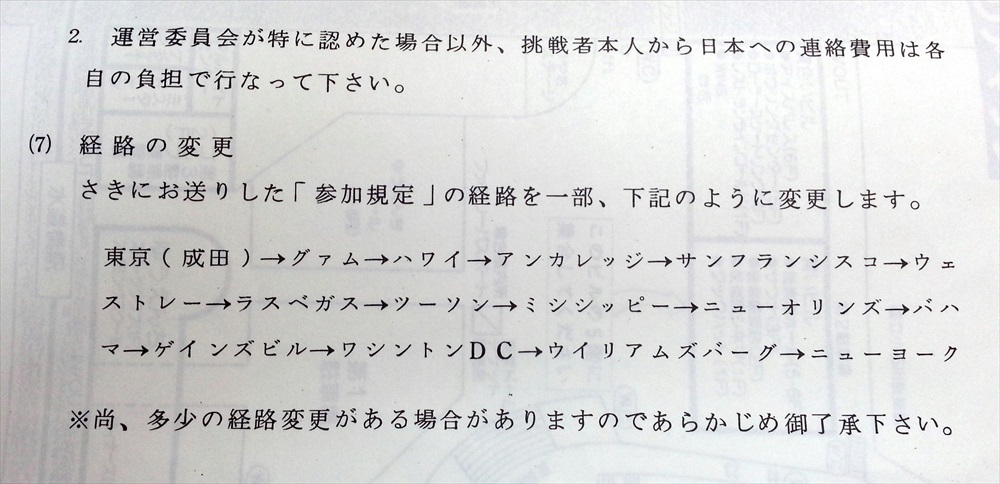 2. 運営委員会が特に認めた場合以外、挑戦者本人から日本への連絡費用は各
自の負担で行なって下さい。
(7) 経路の変更
さきにお送りした「参加規定」の経路を一部、下記のように変更します。
東京(成田)→グァム→ハワイ→アンカレッジ→サンフランシスコ→ウェ
ストレー→ラスベガス→ツーソン→ミシシッピー→ニューオリンズ→バハ
マ→ゲインズビル→ワシントンDC→ウイリアムズバーグ→ニューヨーク
※尚、多少の経路変更がある場合がありますのであらかじめ御了承下さい。